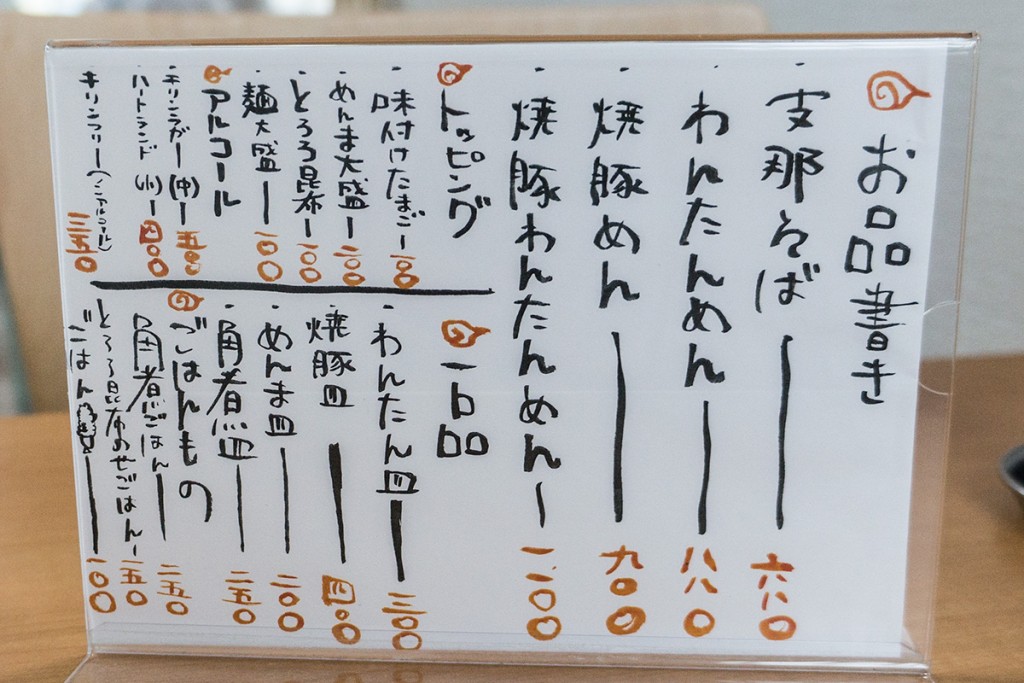 お品書き
・支那そば 六八〇
・わんたんめん 八八〇
・焼豚めん 九〇〇
・焼豚わんたんめん 一、一〇〇
トッピング
・味付けたまご 一〇〇
・めんま大盛 二〇〇
・とろろ昆布 一〇〇
・麺大盛 一〇〇
アルコール
・キリンラガー(中) 五〇〇
・ハートランド(小) 四〇〇
・キリンフリー(ノンアルコール) 三五〇
一品
・わんたん皿 三〇〇
・焼豚皿 四〇〇
・めんま皿 二〇〇
・角煮皿 二五〇
ごはんもの
・角煮ごはん 二五〇
・とろろ昆布のせごはん 一五〇
・ごはん 一〇〇